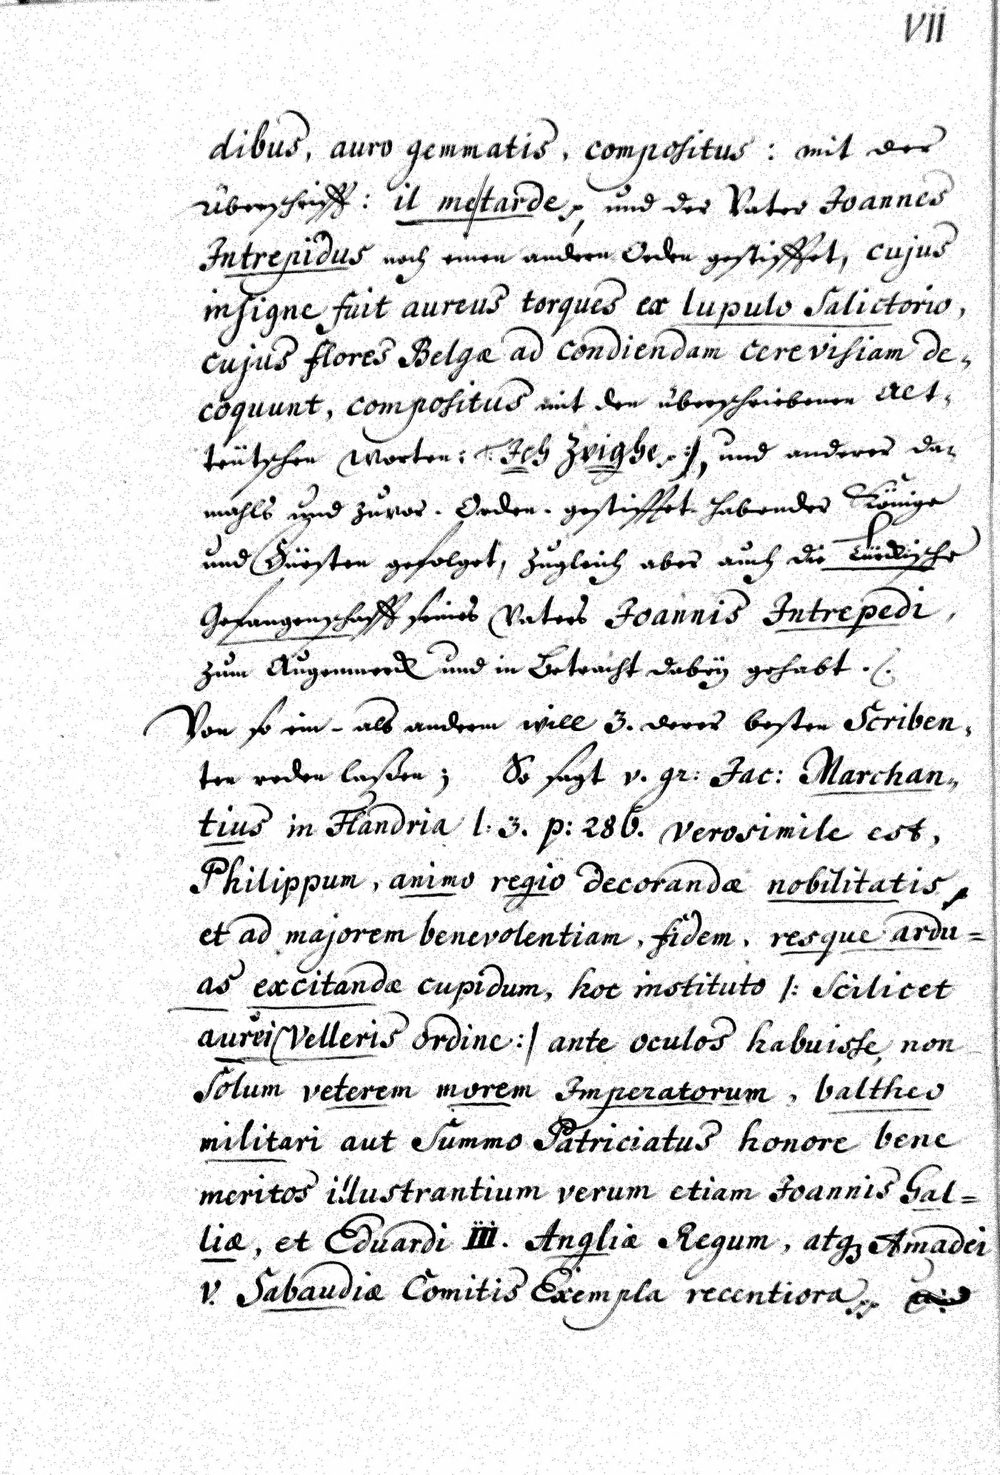 VII
dibus, auro gemmatis, compositus : mit der
überschrifft: il me tarde, und der Vater Joannes
Intrepidus noch einen andern Orden gestifftet, cujus
insigne fuit aureus torques ex lupulo Salictorio,
cujus flores Belgæ ad condiendam cerevisiam de-
coquunt, compositus mit den überschriebenen alt-
teütschen worten: Ich Zvighe :/, und anderer da-
mahls und zuvor. Orden. gestifftet. habender Könige
und Fürsten gefolget, zugleich aber auch die türckische
Gefangenschafft seines Vaters Joannis Intrepedi,
zum Augenmerck und in Betracht dabeÿ gehabt.
Von so ein- als anderm will 3. derer besten Scriben-
ten reden laßen; So sagt v. gr: Jac: Marchan-
tius in Flandria l: 3. p: 286. verosimile est,
Philippum, animo regio decorandæ nobilitatis,
et ad majorem benevolentiam, fidem, resque ardu=
as excitandæ cupidum, hoc instituto /: Scilicet
aurei Velleris ordine :/ ante oculos habuisse, non
Solum veterem morem Imperatorum, baltheo
militari aut Summo Patriciatus honore bene
meritos illustrantium verum etiam Joannis Gal=
liæ, et Eduardi III. Angliæ Regum, atq; Amadei
V. Sabaudiæ Comitis Exempla recentiora